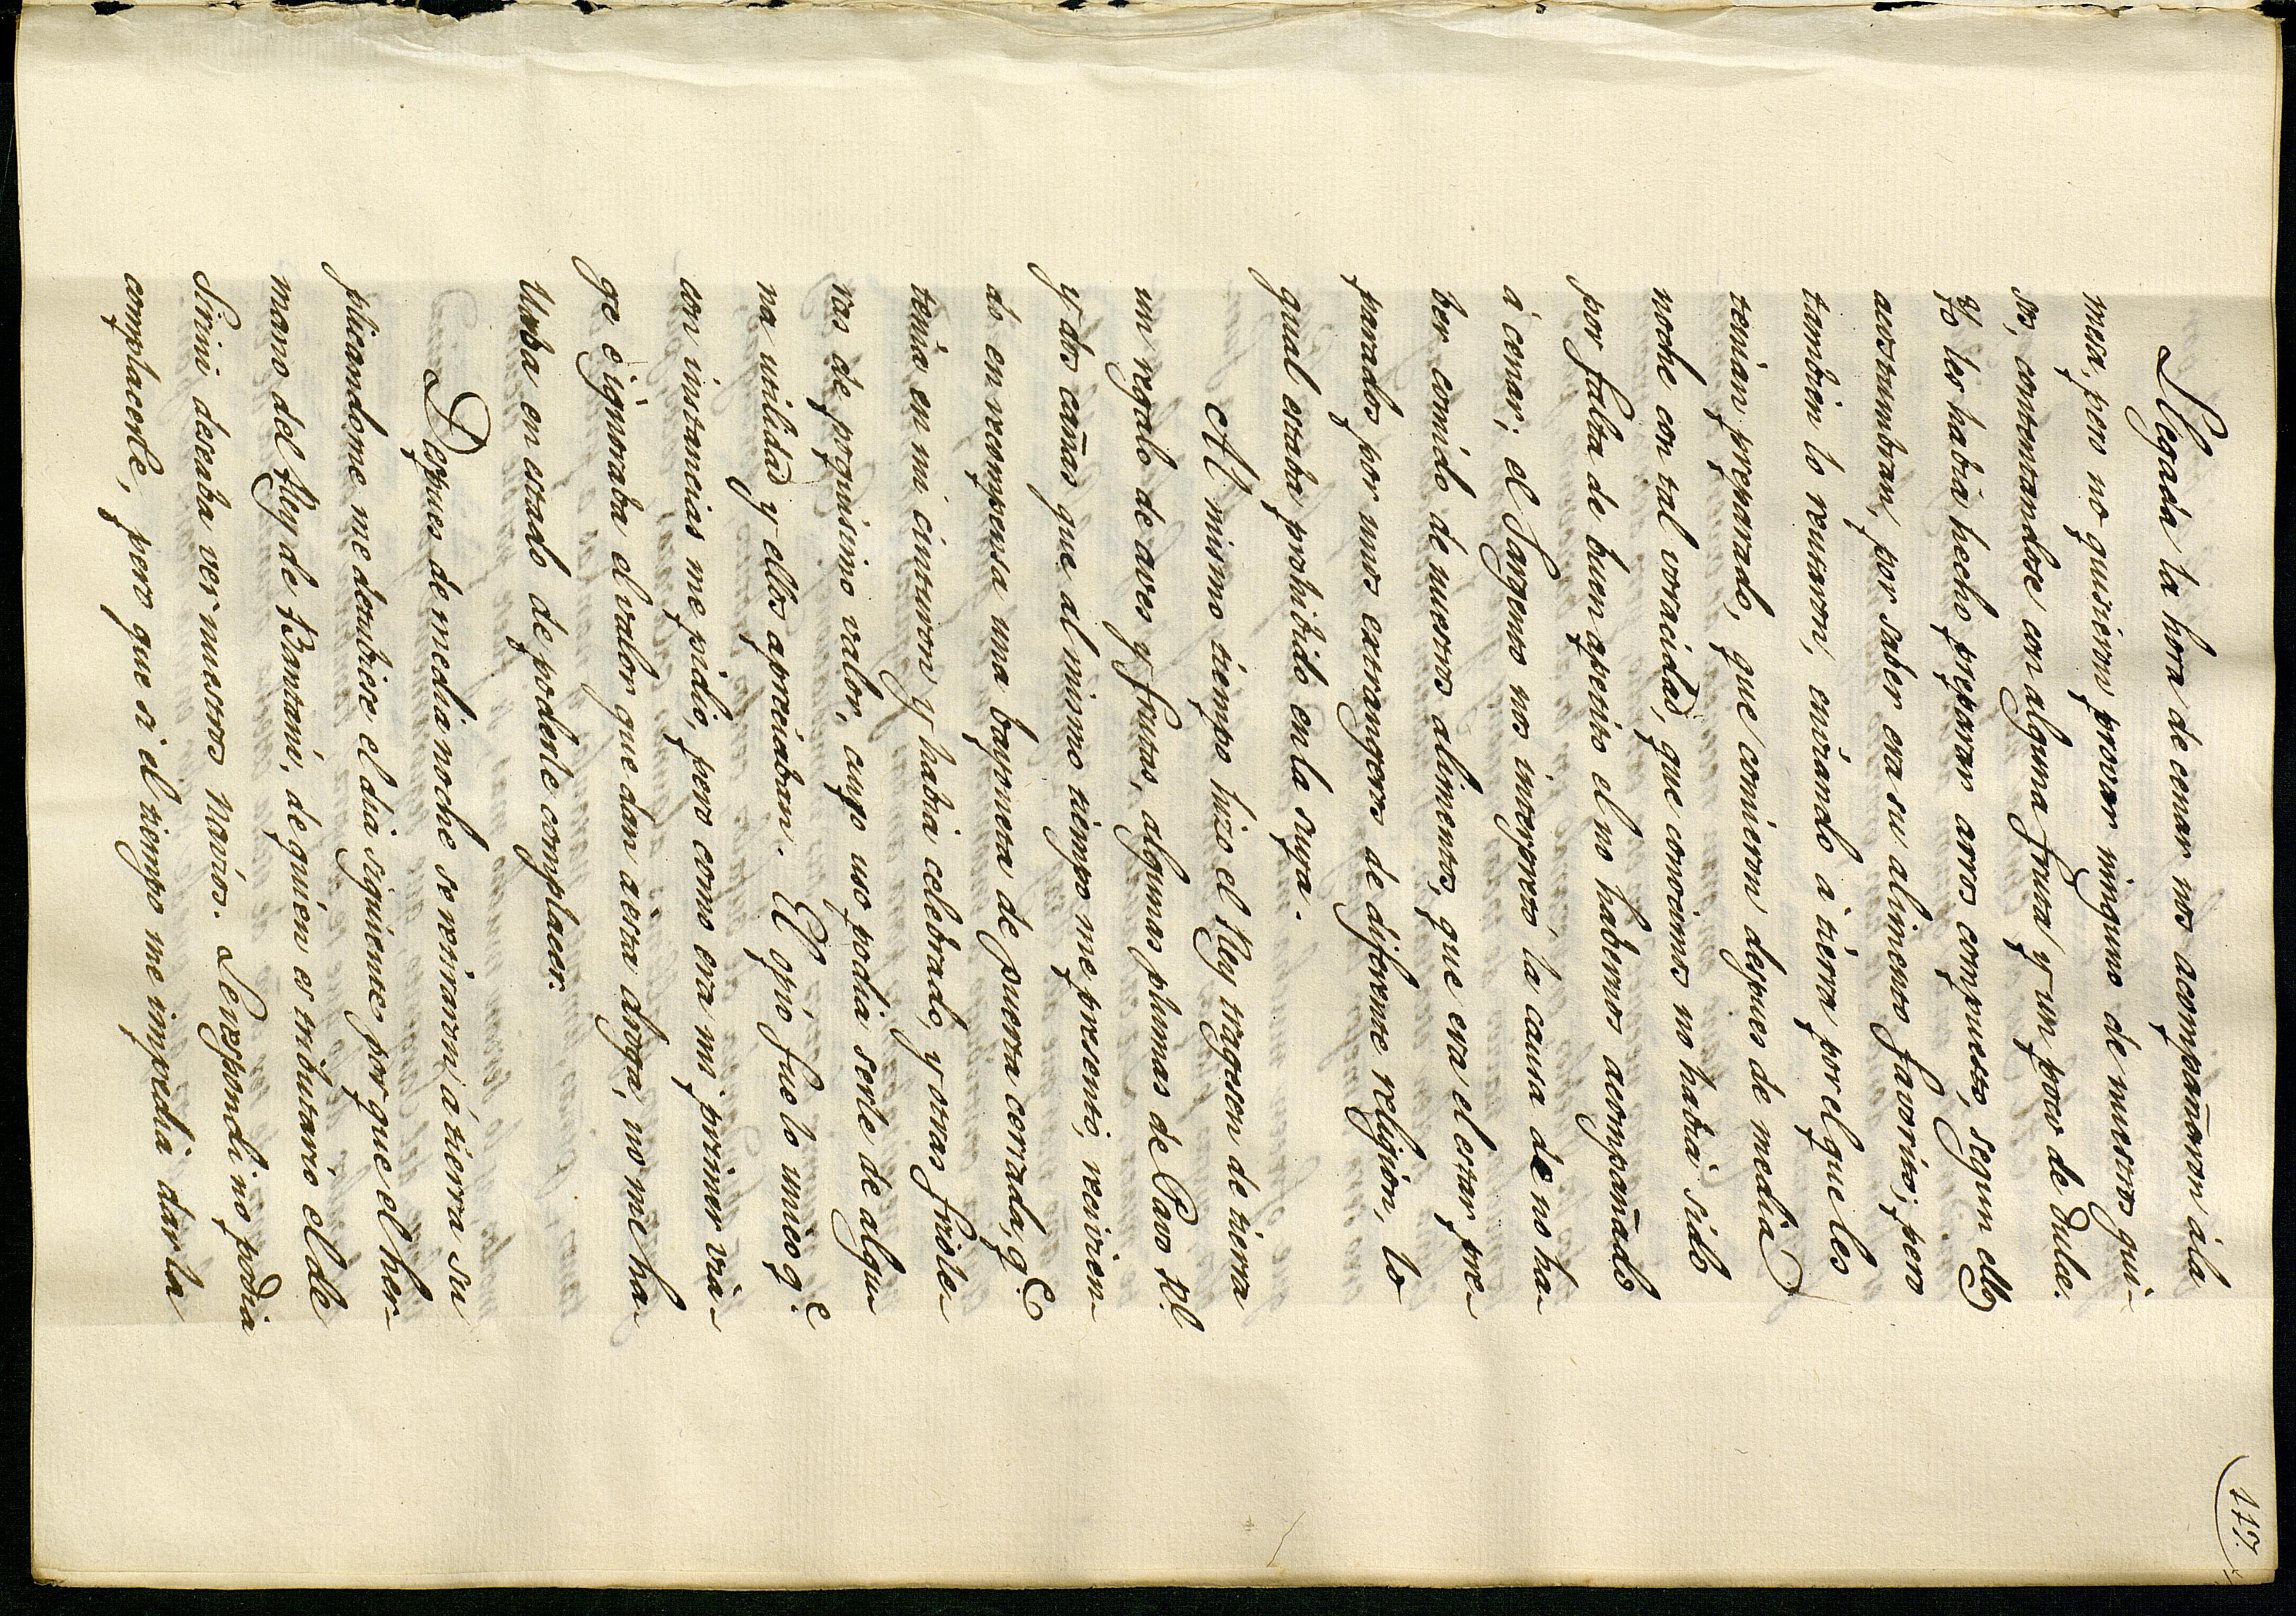 117.
Llegada la hora de cenar nos acompañaron á la
mesa, pero no quisieron provar ninguno de nuestros gui-
sos, contentandose con alguna fruta y un poco de dulce.
Yo les habia hecho preparar arros compuesto, segun ellos
acostumbran, por saber era su alimento favorito; pero
tambien lo reusaron, enviando a tierra por el que les
tenian preparado, que comieron despues de media
noche con tal voracidad, que conocimos no habia sido
por falta de buen apetito el no habernos acompañado
á cenar; el Sargento nos interpretó la causa de no ha-
ber comido de nuestros alimentos, que era el estar pre-
parados por unos extrangeros de diferente religion, lo
qual estaba prohibido en la suya.
Al mismo tiempo hizo el Rey tragesen de tierra
un regalo de aves y frutas, algunas plumas de Pavo Rl.
y dos cañas que al mismo tiempo me presentó, recivien-
do en recompensa una bayoneta de puenta cerrada, q.e
tenia en mi cinturon y habia celebrado, y otras friole-
ras de poquisimo valor, cuyo uso podia serle de algu-
na utilidad y ellos apreciaban. El opio fue lo unico q.e
con instancias me pidió, pero como era mi primer via-
ge é ignoraba el valor que dan a esta droga, no me ha-
llaba en estado de poderle complacer.
Despues de media noche se retiraron á tierra su
plicandome me detubiese el dia siguiente porque el her-
mano del Rey de Bantam, de quien es tributario el de
Sirini deseaba ver nuestros navios. Le respondi no podia
complacerle, pero que si el tiempo me impedia dar la